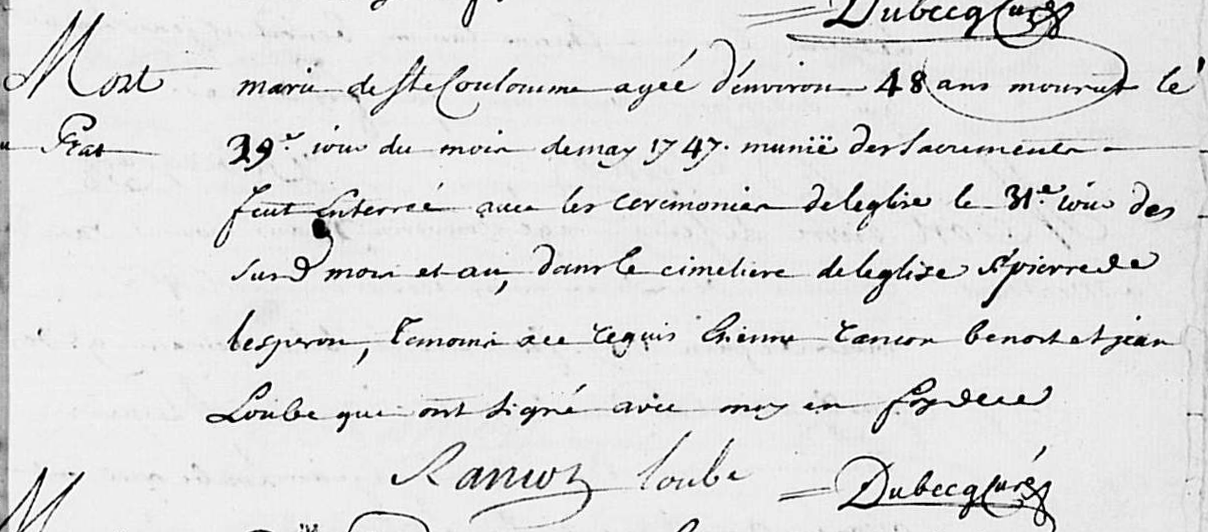 Dubecq Curé
Mort marie de Ste Couloumme agéé d'énviron 48 ans mourut lé
Grat 29.e iour du mois de may 1747. munië des Sacrements
feut Enterréé avec les ceremonies de leglise le 31.e iour des
surd mois et an, dans le cimetiere de leglise St pierre de
lesperon, Temoins ace requis Etienne rancon benoit et jean
Loube qui ont signé avec moy en foy de ce
Rancon loube Dubecq Curé